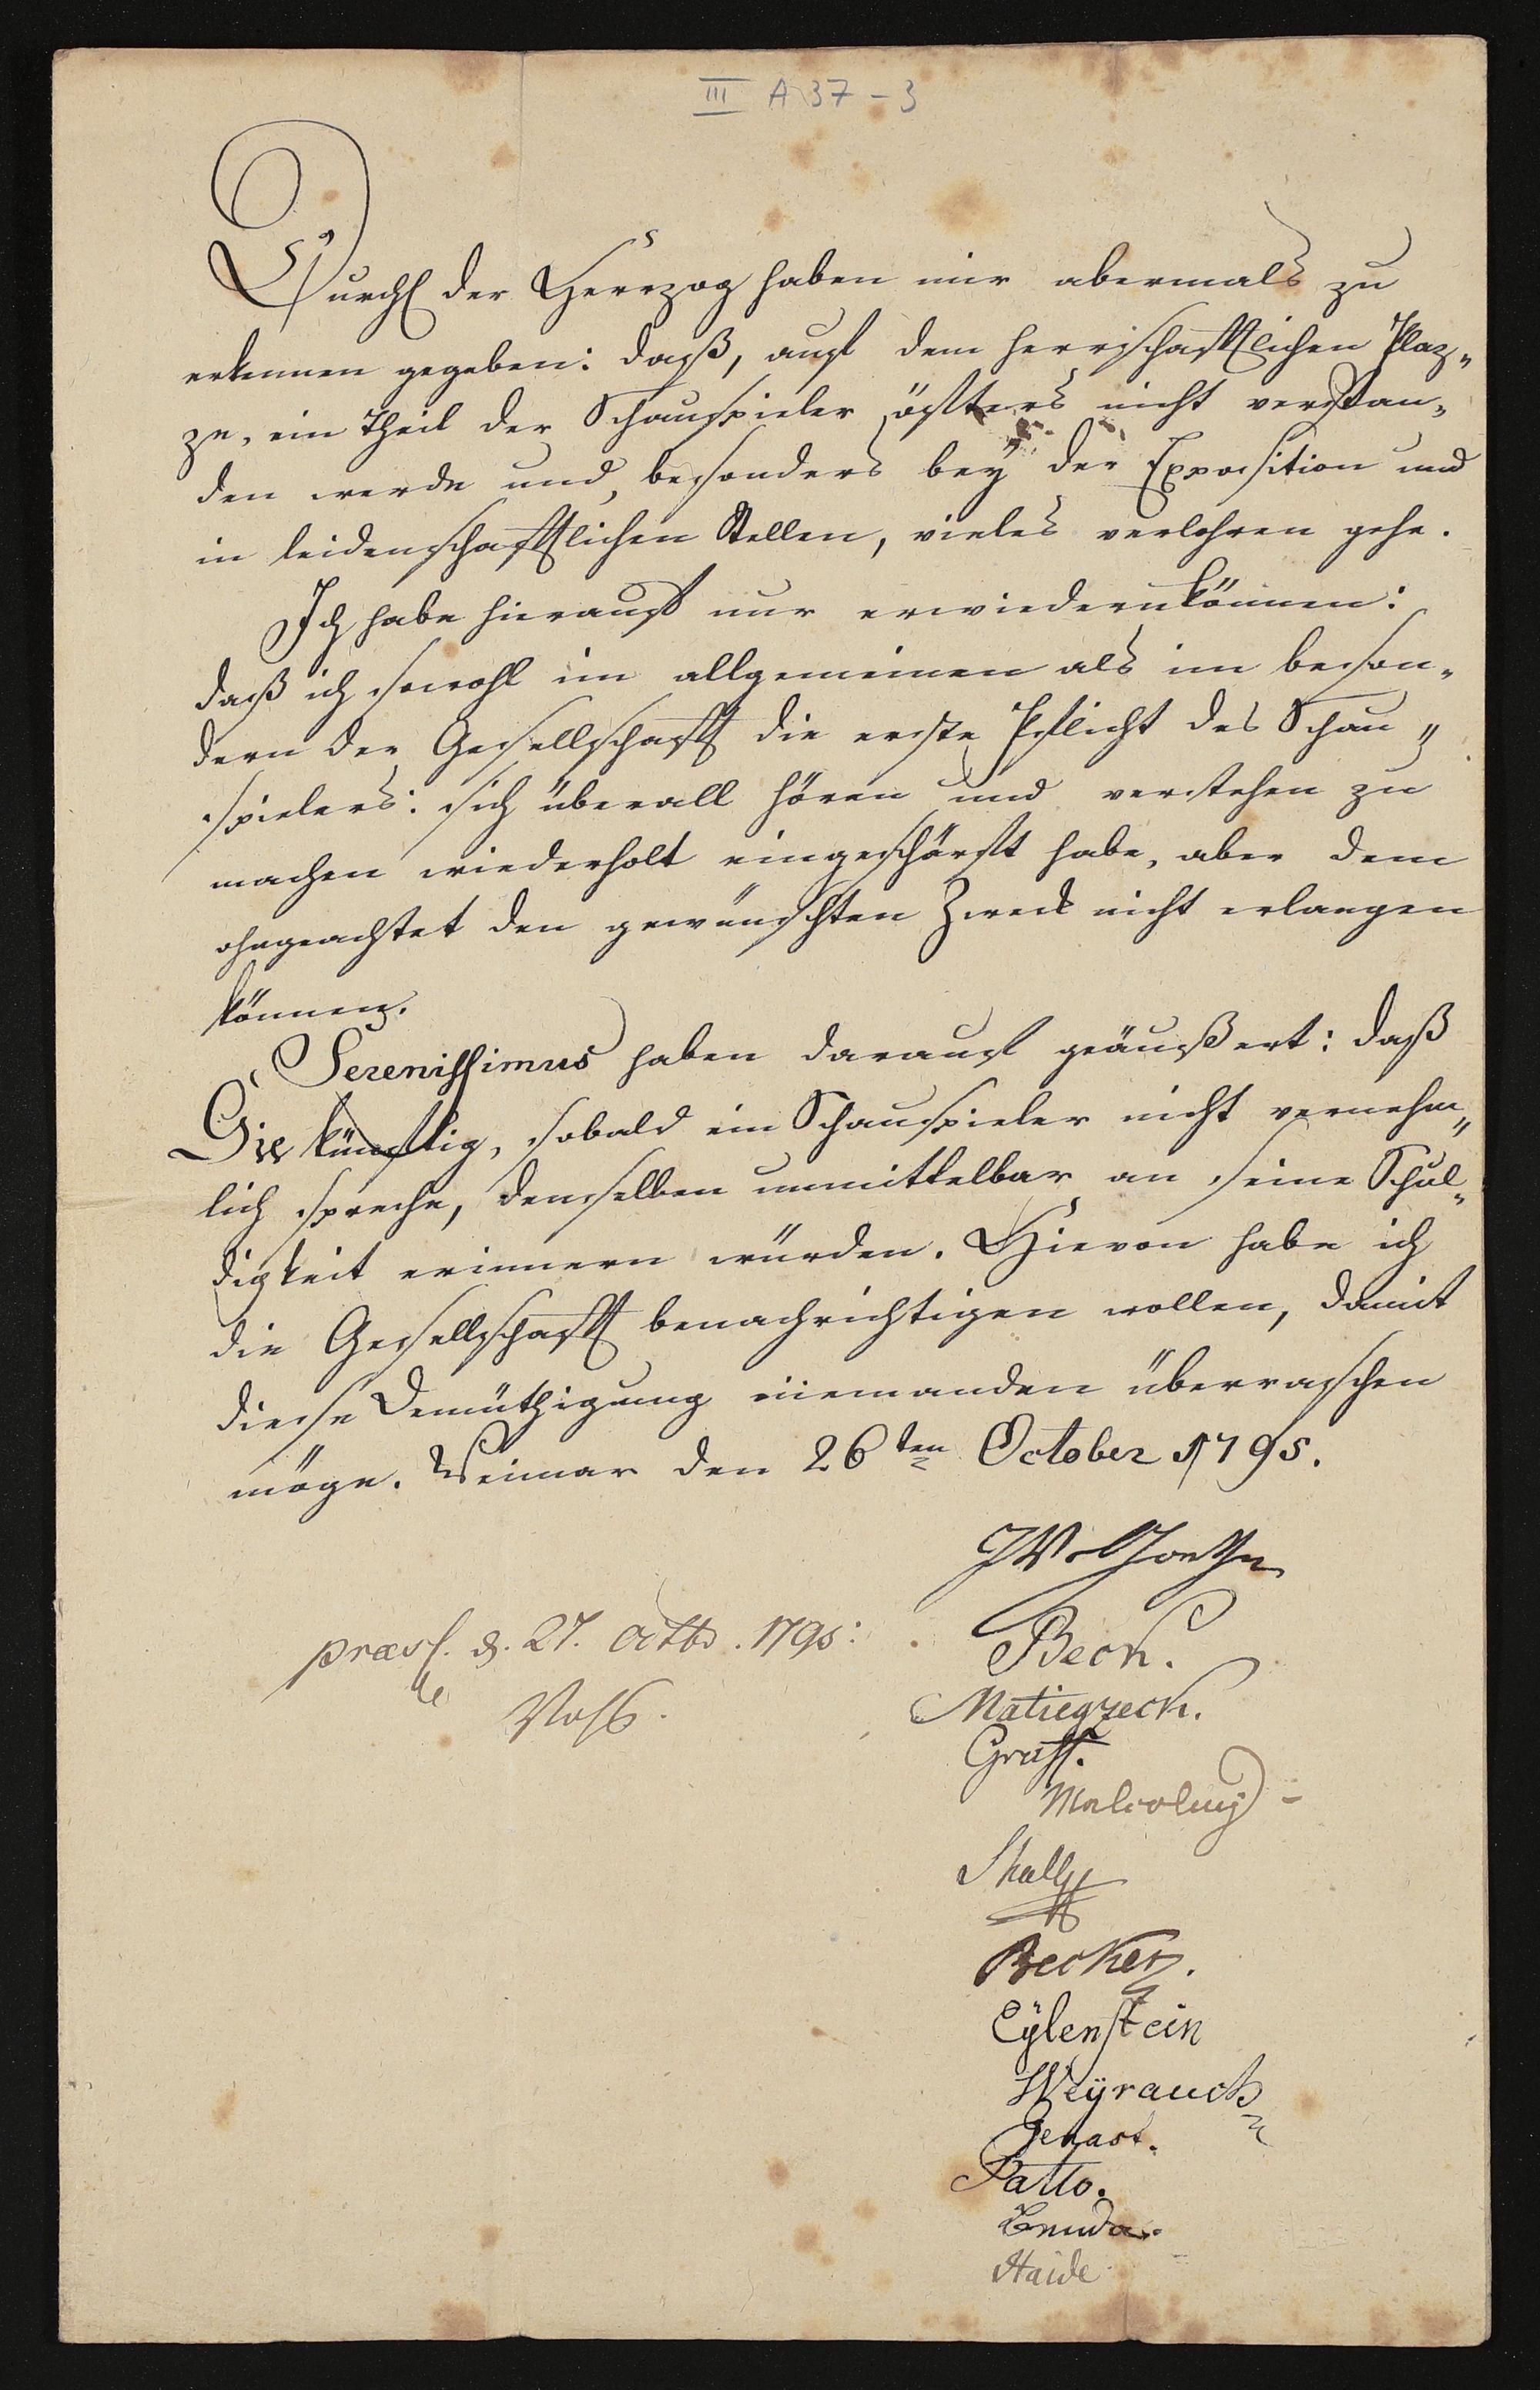 III A 37-3
Durchl der Herrzog haben mir abermals zu
erkennen gegeben: daß, auf dem herrschafftlichen Plaz„
ze, ein Theil der Schauspieler öffters nicht verstan„
den werde und, besonders bey der Exposition und
in leidenschafftlichen Stellen, vieles verlohren gehe.
Ich habe hierauf nur erwiedern können:
daß ich sowohl im allgemeinen als im beson„
dern der Gesellschafft die erste Pflicht des Schau„
spielers: sich überall hören und verstehen zu
machen wiederholt eingeschärft habe, aber dem
ohngeachtet den gewünschten Zweck nicht erlangen
können.
Serenissimus haben darauf geäußert: daß
Sie künftig, sobald ein Schauspieler nicht vernehm„
lich spreche, denselben unmittelbar an seine Schul„
digkeit erinnern würden. Hievon habe ich
die Gesellschafft benachrichtigen wollen, damit
diese Demüthigung niemanden überraschen
möge. Weimar den 26ten October 1795.
JWvGoethe
praes. d. 27. Octbr. 1795:
Voß.
Beck.
Matiegzeck.
Graff.
Malcolmj
Shall
Becker.
Eylenstein
Weyrauch
Genast.
Patto.
Benda.
Haide